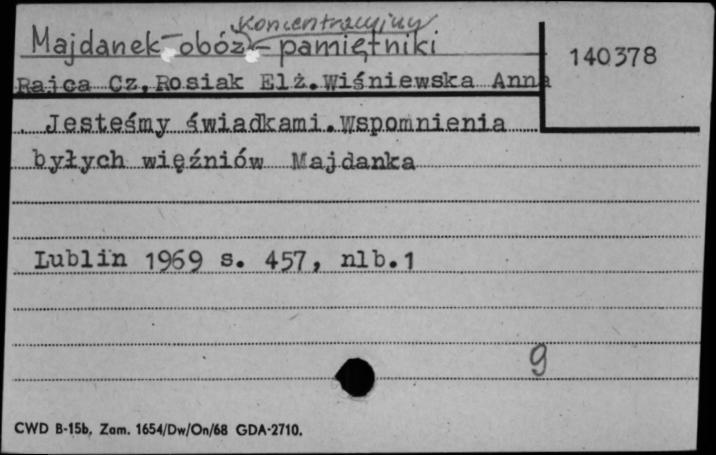 koncentracyjny
Majdanek - obóz - pamiętniki
140378
Rajca Cz, Rosiak Elż. Wiśniewska Anna
Jesteśmy świadkami. Wspomnienia
byłych więźniów Majdanka
Lublin 1969 s. 457, nlb.1
9
CWD B-15b, Zam. 1654/Dw/On/68 GDA-2710.